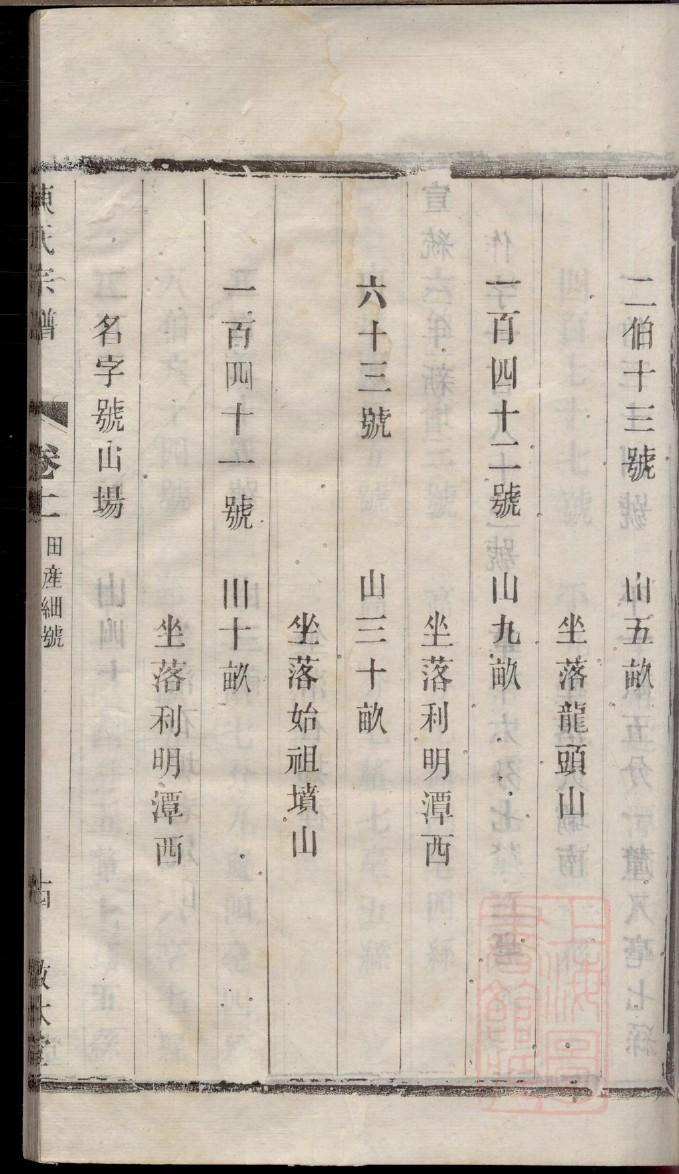 二伯十三號　山五畝
坐落龍頭山
一百四十二號　山九畝
坐落利明潭西
六十三號　山三十畝
坐落始祖墳山
一百四十一號　川十畝
坐落利明潭西
名字號山場
氏宗譜　卷二　田產細號